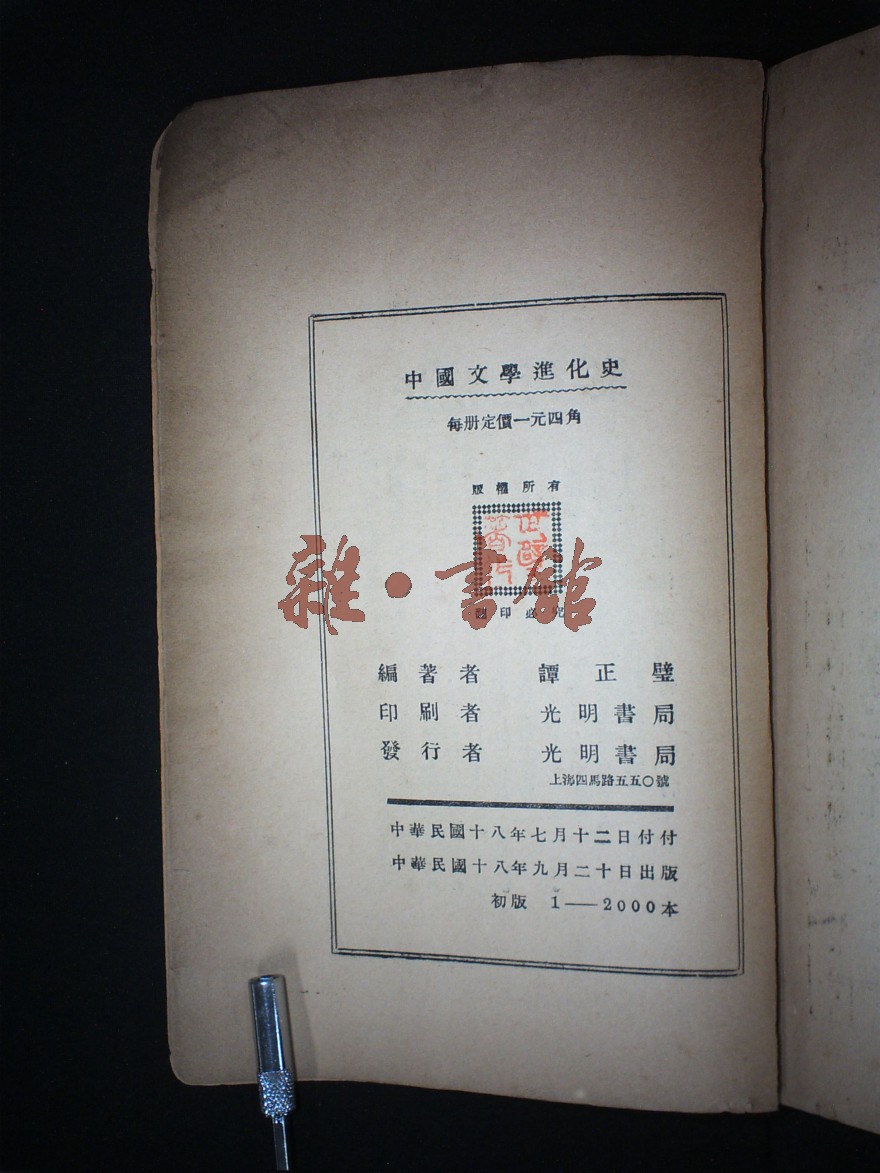 中國文學進化史
每册定價一元四角
版權所有
雜·書館
翻印必究
編著者 譚正璧
印刷者 光明書局
發行者 光明書局
上海四馬路五五〇號
中華民國十八年七月十二日付付
中華民國十八年九月二十日出版
初版 1——2000本